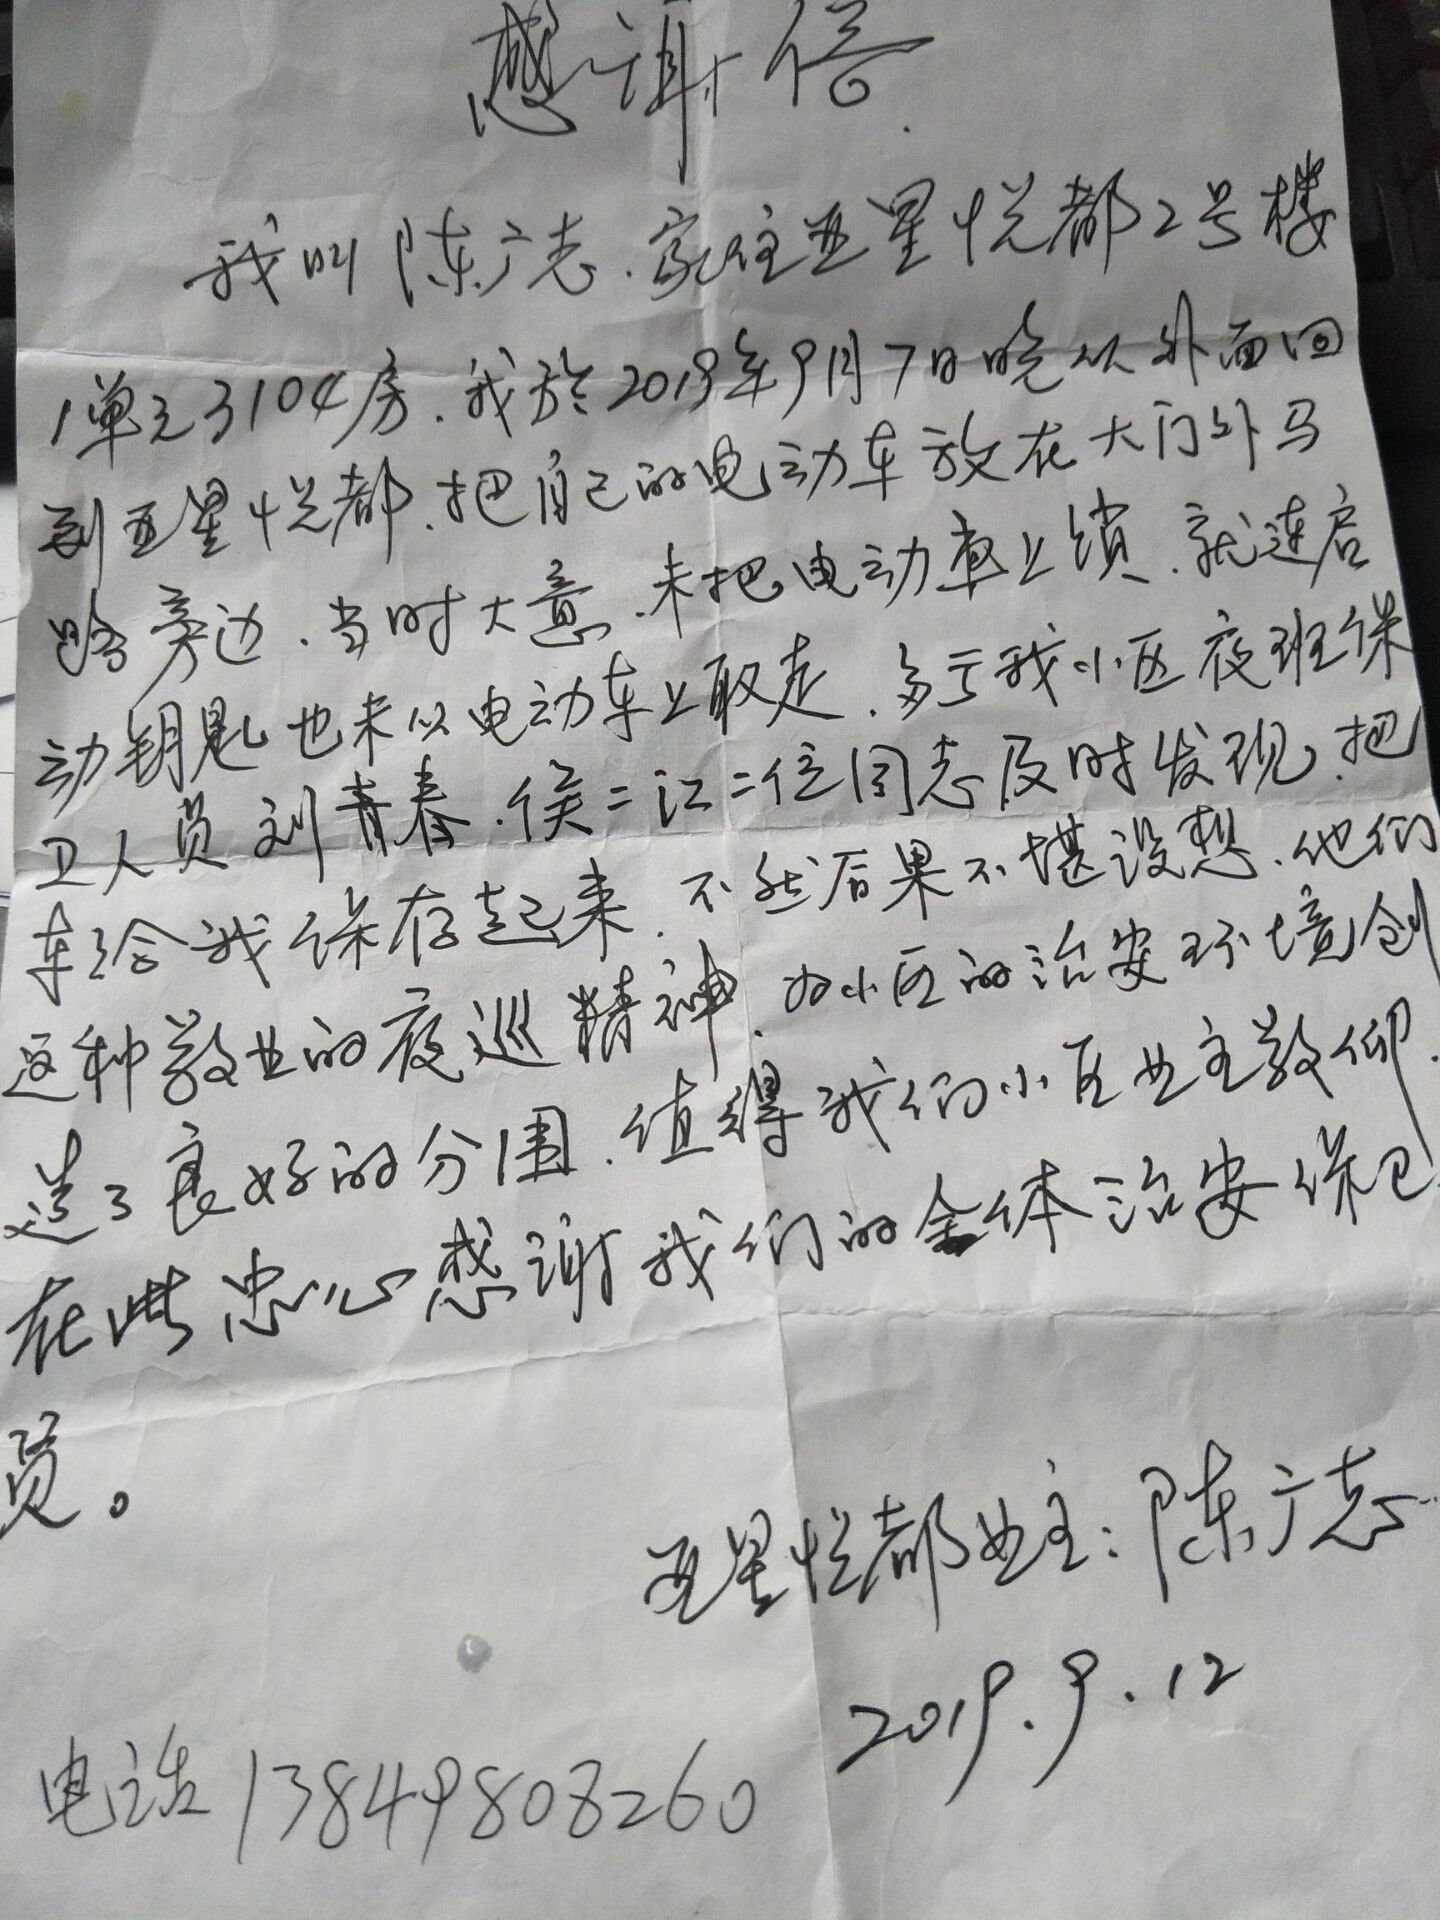 感谢信
我叫陈广志.家住亚星悦都2号楼
1单元3104房.我於2019年9月7日晚从外面回
到亚星悦都.把自己的电动车放在大门外马
路旁边.当时大意.未把电动車上锁.就连启
动钥匙也未从电动车上取走.多亏我小区夜班保
卫人员刘青春.侯二江二位同志及时发现.把
车给我保存起来.不然后果不堪设想.他们
这种敬业的夜巡精神.为小区的治安环境创
造了良好的分围.值得我们小区业主敬仰.
在此忠心感谢我们的全体治安保卫
员。
亚星悦都业主:陈广志
2019.9.12
电话13849808260